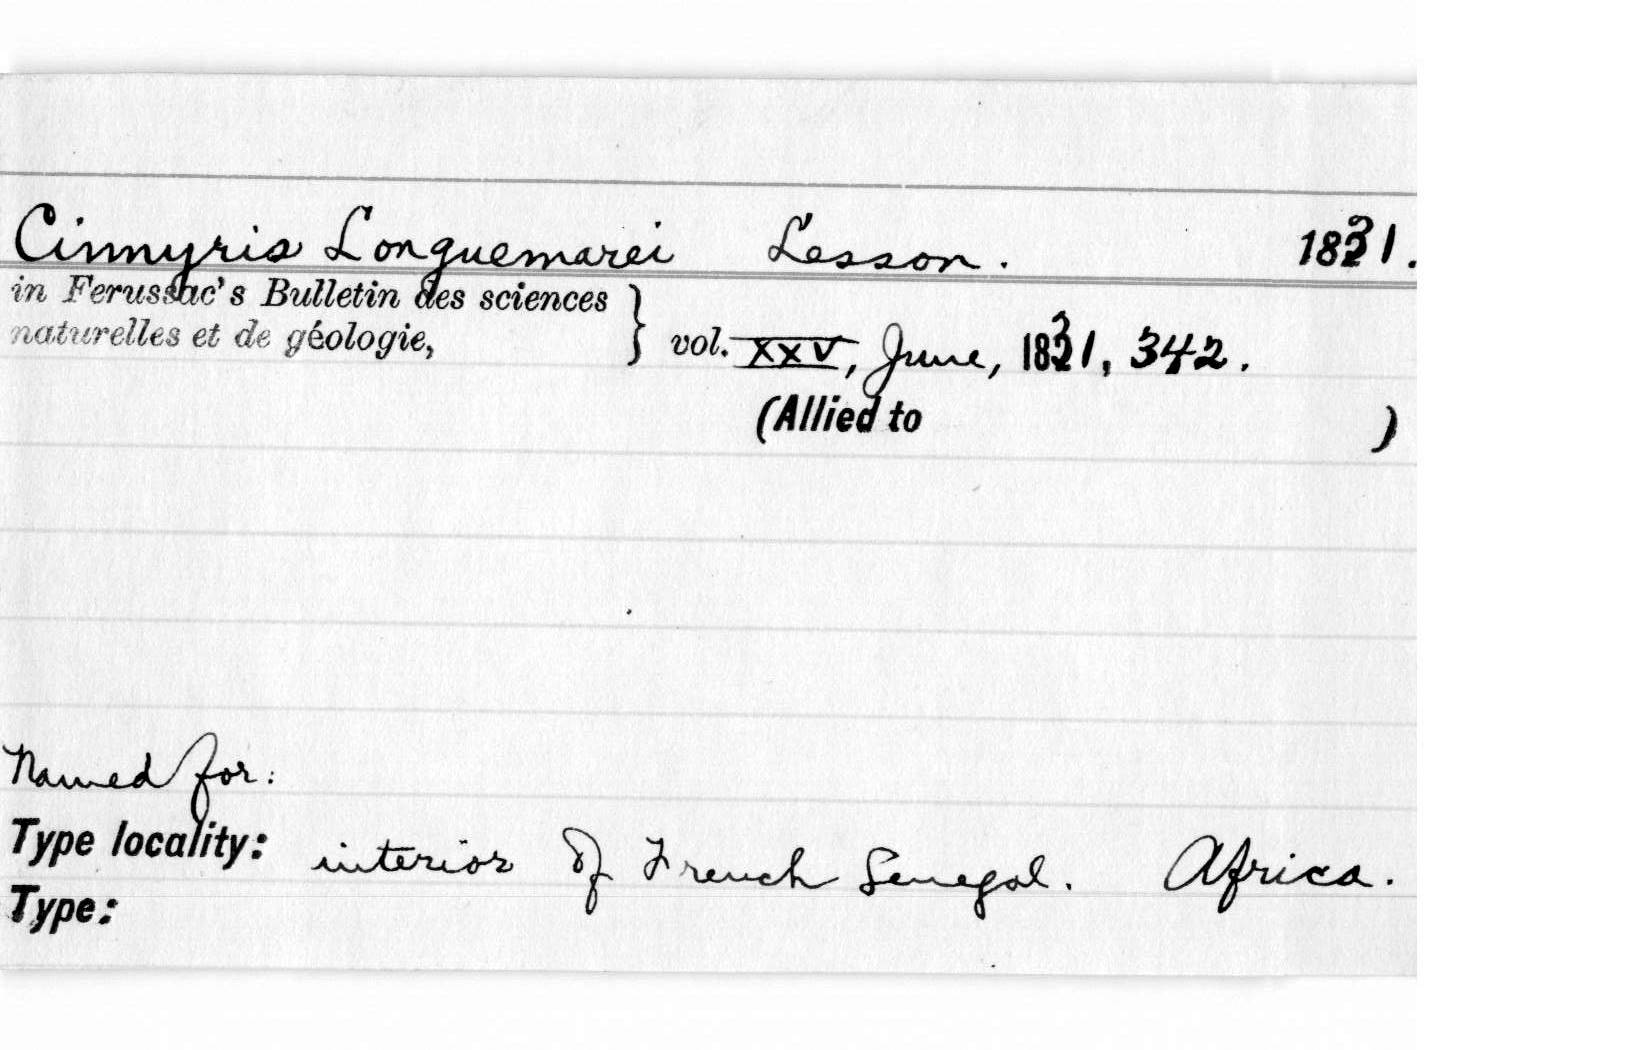 Cinnyris Longuemarei Lesson. 1831.
in Ferussac's Bulletin des sciences
naturelles et de géologie, } vol. XXV, June, 1831, 342.
(Allied to )
Named for:
Type locality: interior of French Senegal. Africa.
Type: